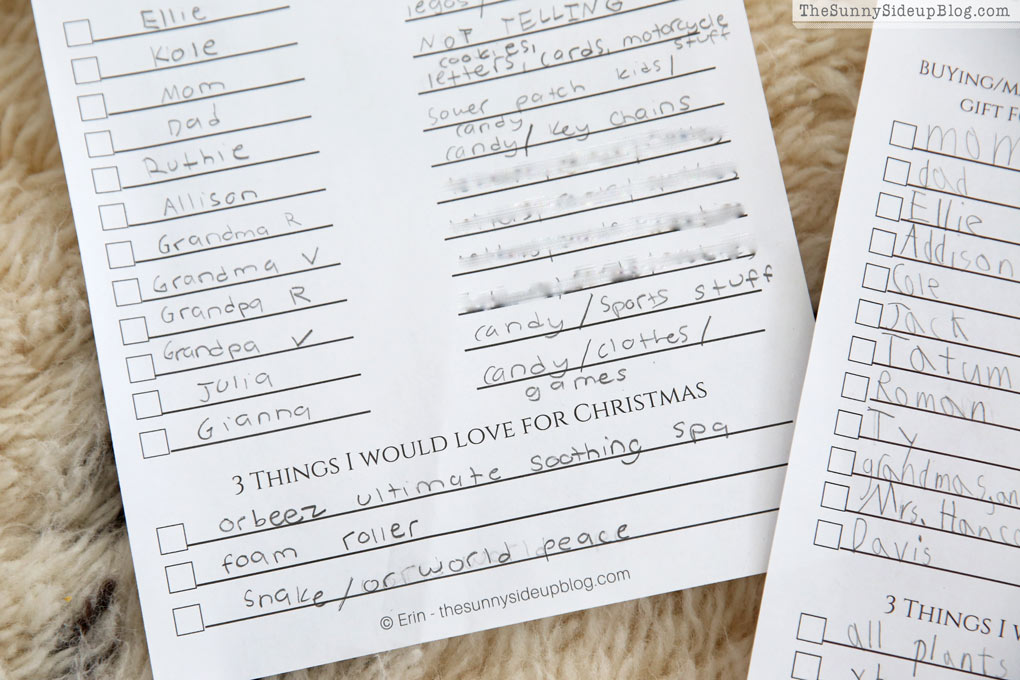 TheSunnySideupBlog.com
Ellie
Kole
Mom
Dad
Ruthie
Allison
Grandma R
Grandma V
Grandpa R
Grandpa V
Julia
Gianna
legos/
NOT TELLING
cookies,
letters, cards, motorcycle
stuff
sower patch kids/
candy
candy/ key chains
candy/sports stuff
candy/clothes/
games
3 THINGS I WOULD LOVE FOR CHRISTMAS
orbeez ultimate soothing spa
foam roller
snake/or world peace
© Erin - thesunnysideupblog.com
BUYING/MA
GIFT FO
mom
dad
Ellie
Addison
Cole
Jack
Tatum
Roman
Ty
grandmas, an
Mrs. Hanco
Davis
3 THINGS I W
all plants